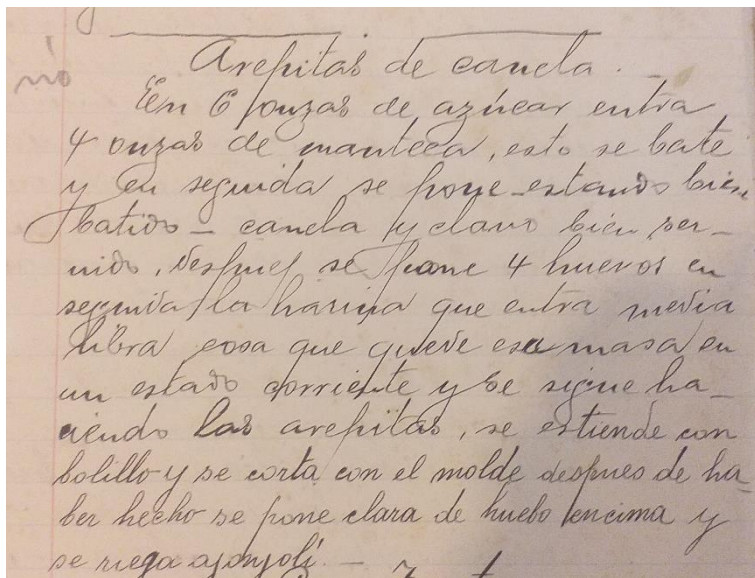 no
Arepitas de canela. –
En 6 onzas de azúcar entra
4 onzas de manteca, esto se bate
y en seguida se pone – estando bien
batido – canela y clavo bien ser-
nido, despues se pone 4 huevos en
seguida la harina que entra media
libra cosa que quede esa masa en
un estado corriente y se sigue ha-
ciendo las arepitas, se estiende con
bolillo y se corta con el molde despues de ha-
ber hecho se pone clara de huebo encima y
se riega ajonjolí. –